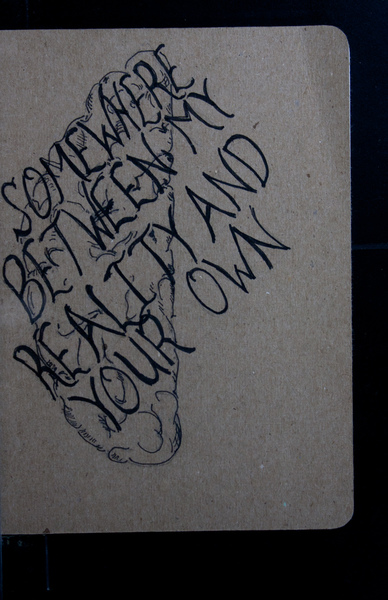 SOMEWHERE
BETWEEN MY
REALITY AND
YOUR OWN